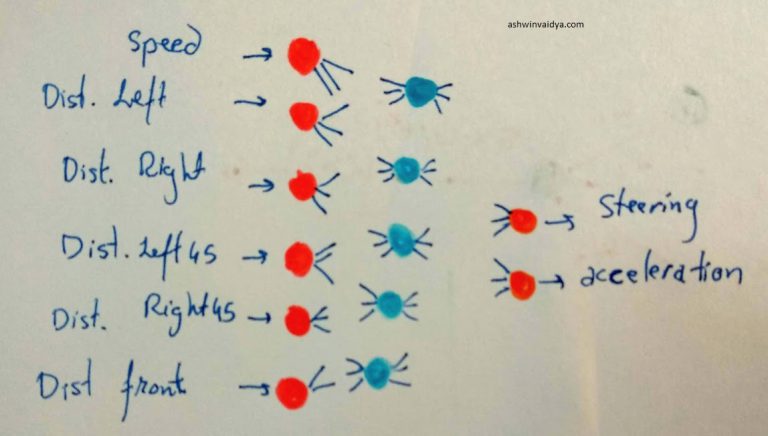 ashwinvaidya.com
Speed
Dist. Left
Dist. Right
Dist. Left 45
Dist. Right 45
Dist front
Steering
acceleration